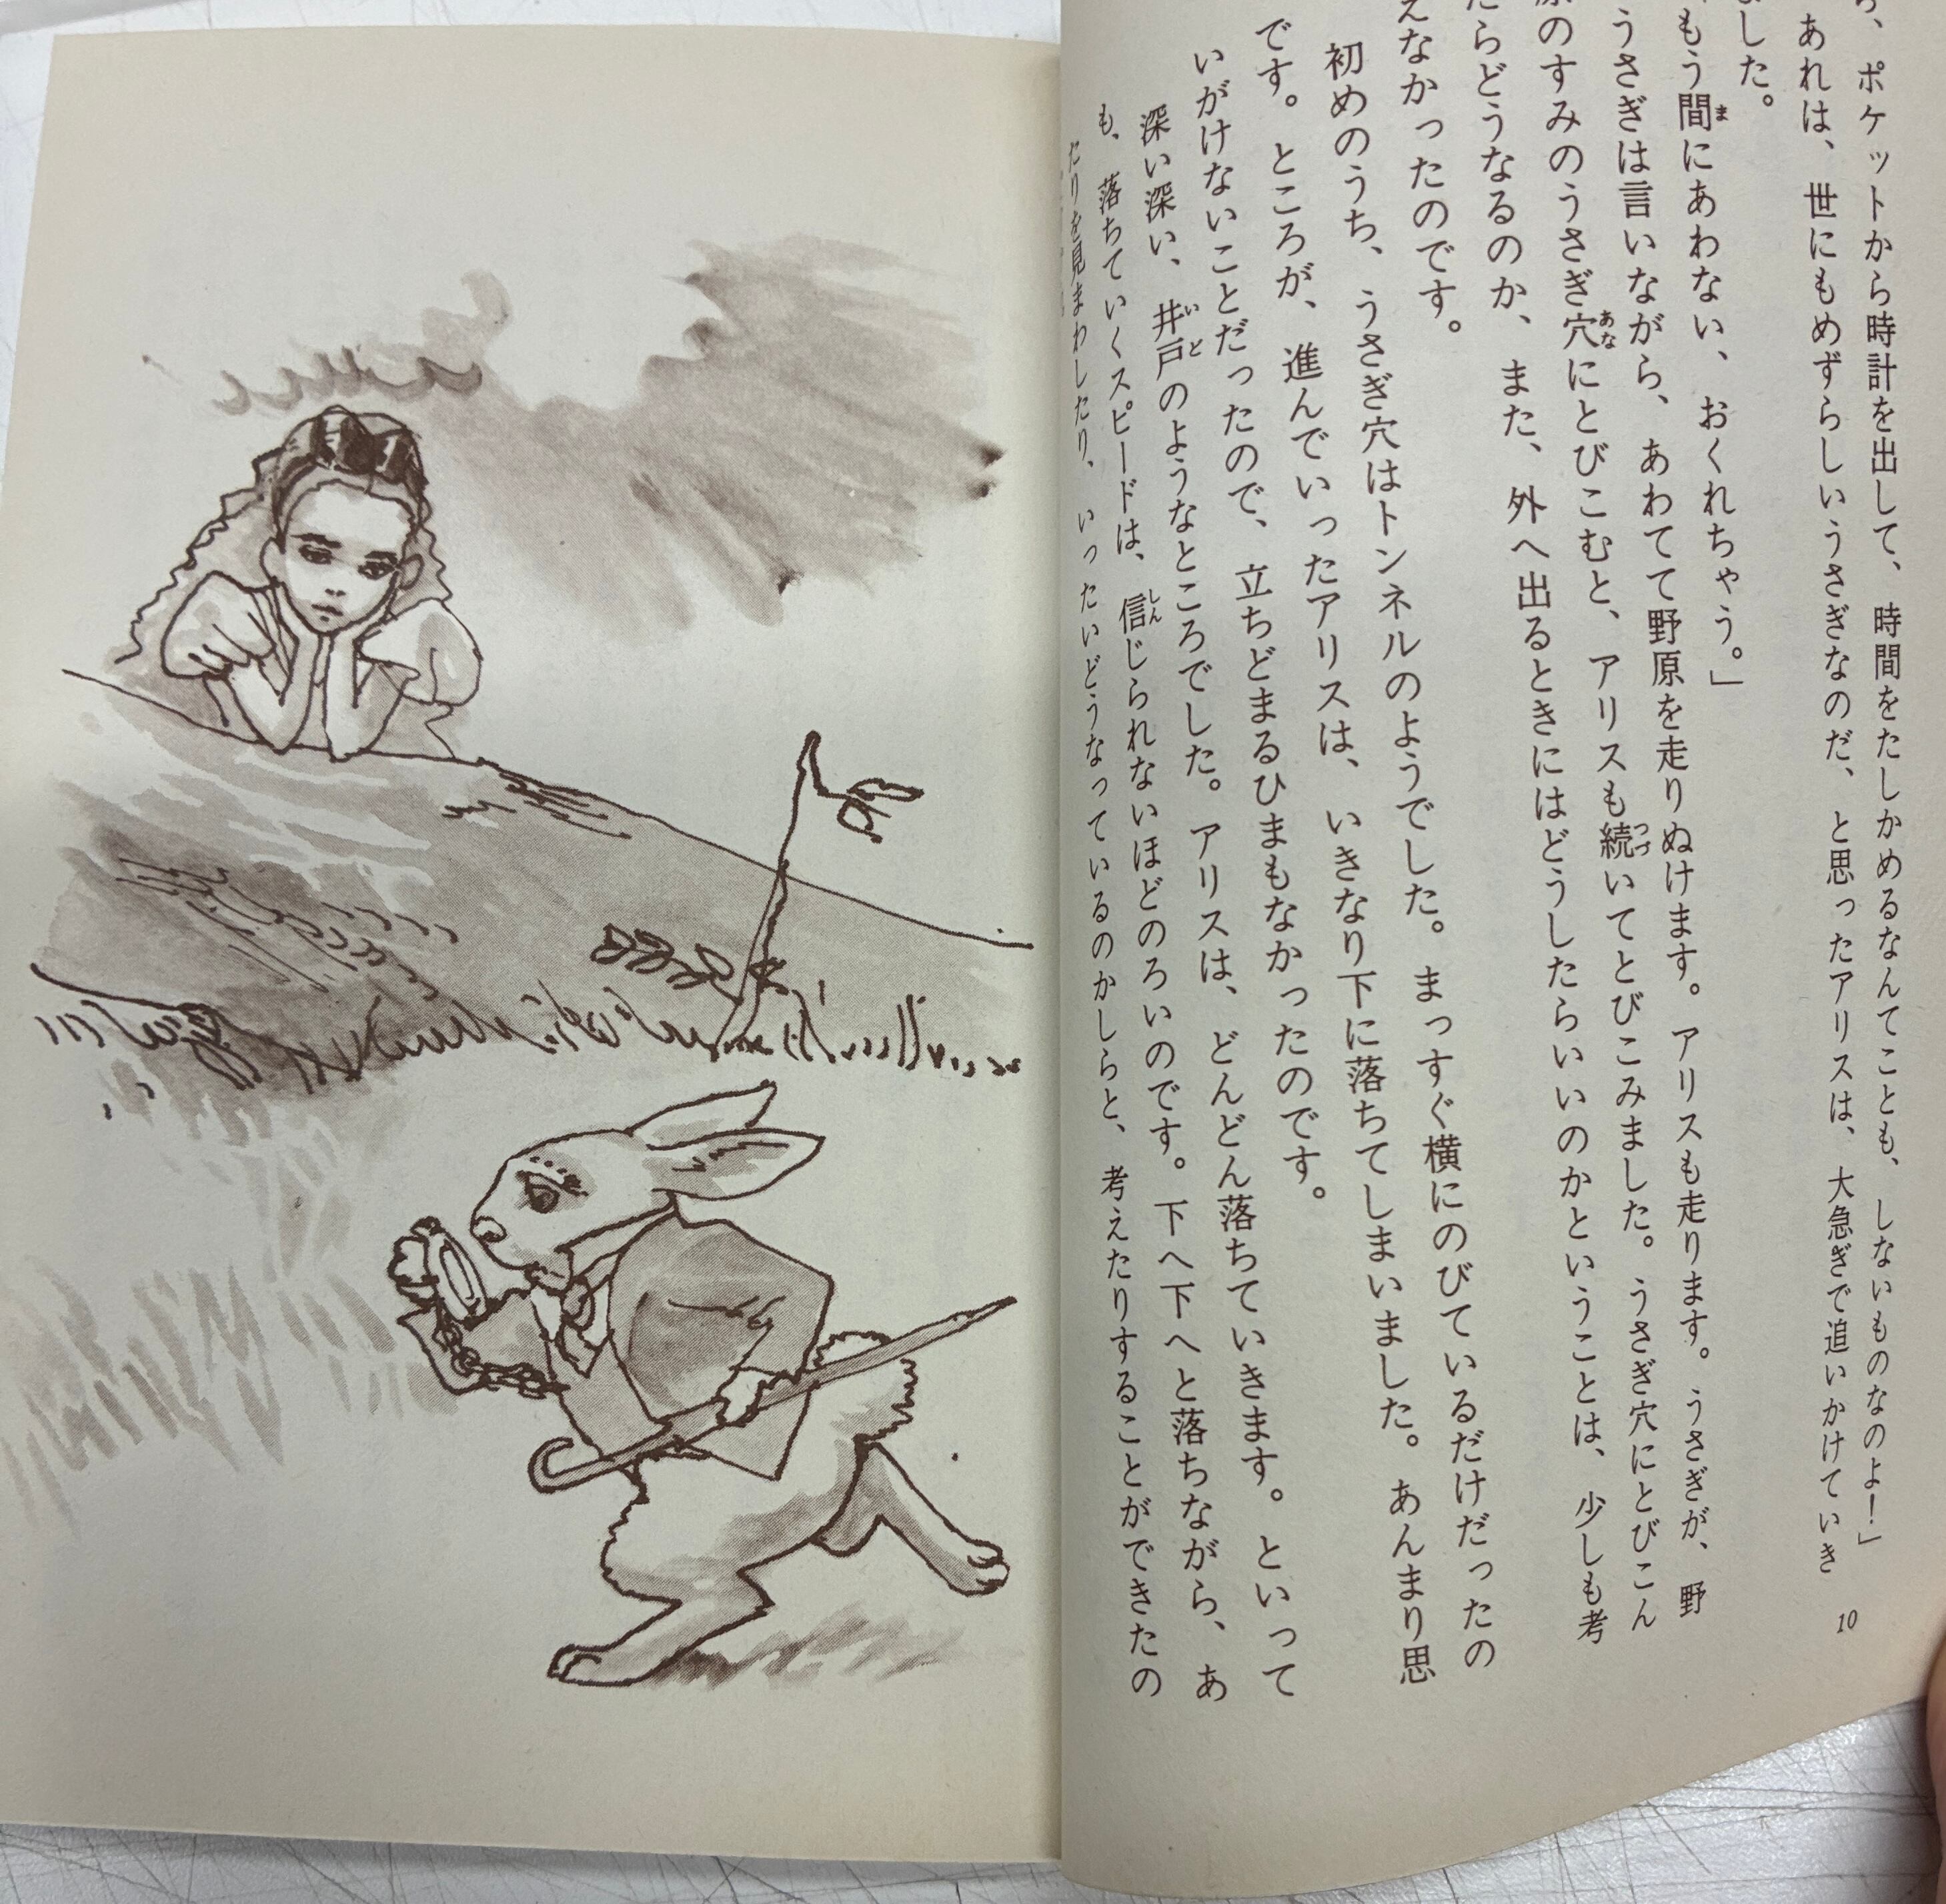 、ポケットから時計を出して、時間をたしかめるなんてことも、しないものなのよ！」
あれは、世にもめずらしいうさぎなのだ、と思ったアリスは、大急ぎで追いかけていき
ました。
もう間にあわない、おくれちゃう。」
うさぎは言いながら、あわてて野原を走りぬけます。アリスも走ります。うさぎが、野
原のすみのうさぎ穴にとびこむと、アリスも続いてとびこみました。うさぎ穴にとびこん
だらどうなるのか、また、外へ出るときにはどうしたらいいのかということは、少しも考
えなかったのです。
初めのうち、うさぎ穴はトンネルのようでした。まっすぐ横にのびているだけだったの
です。ところが、進んでいったアリスは、いきなり下に落ちてしまいました。あんまり思
いがけないことだったので、立ちどまるひまもなかったのです。
深い深い、井戸のようなところでした。アリスは、どんどん落ちていきます。といって
も、落ちていくスピードは、信じられないほどのろいのです。下へ下へと落ちながら、あ
たりを見まわしたり、いったいどうなっているのかしらと、考えたりすることができたの
10